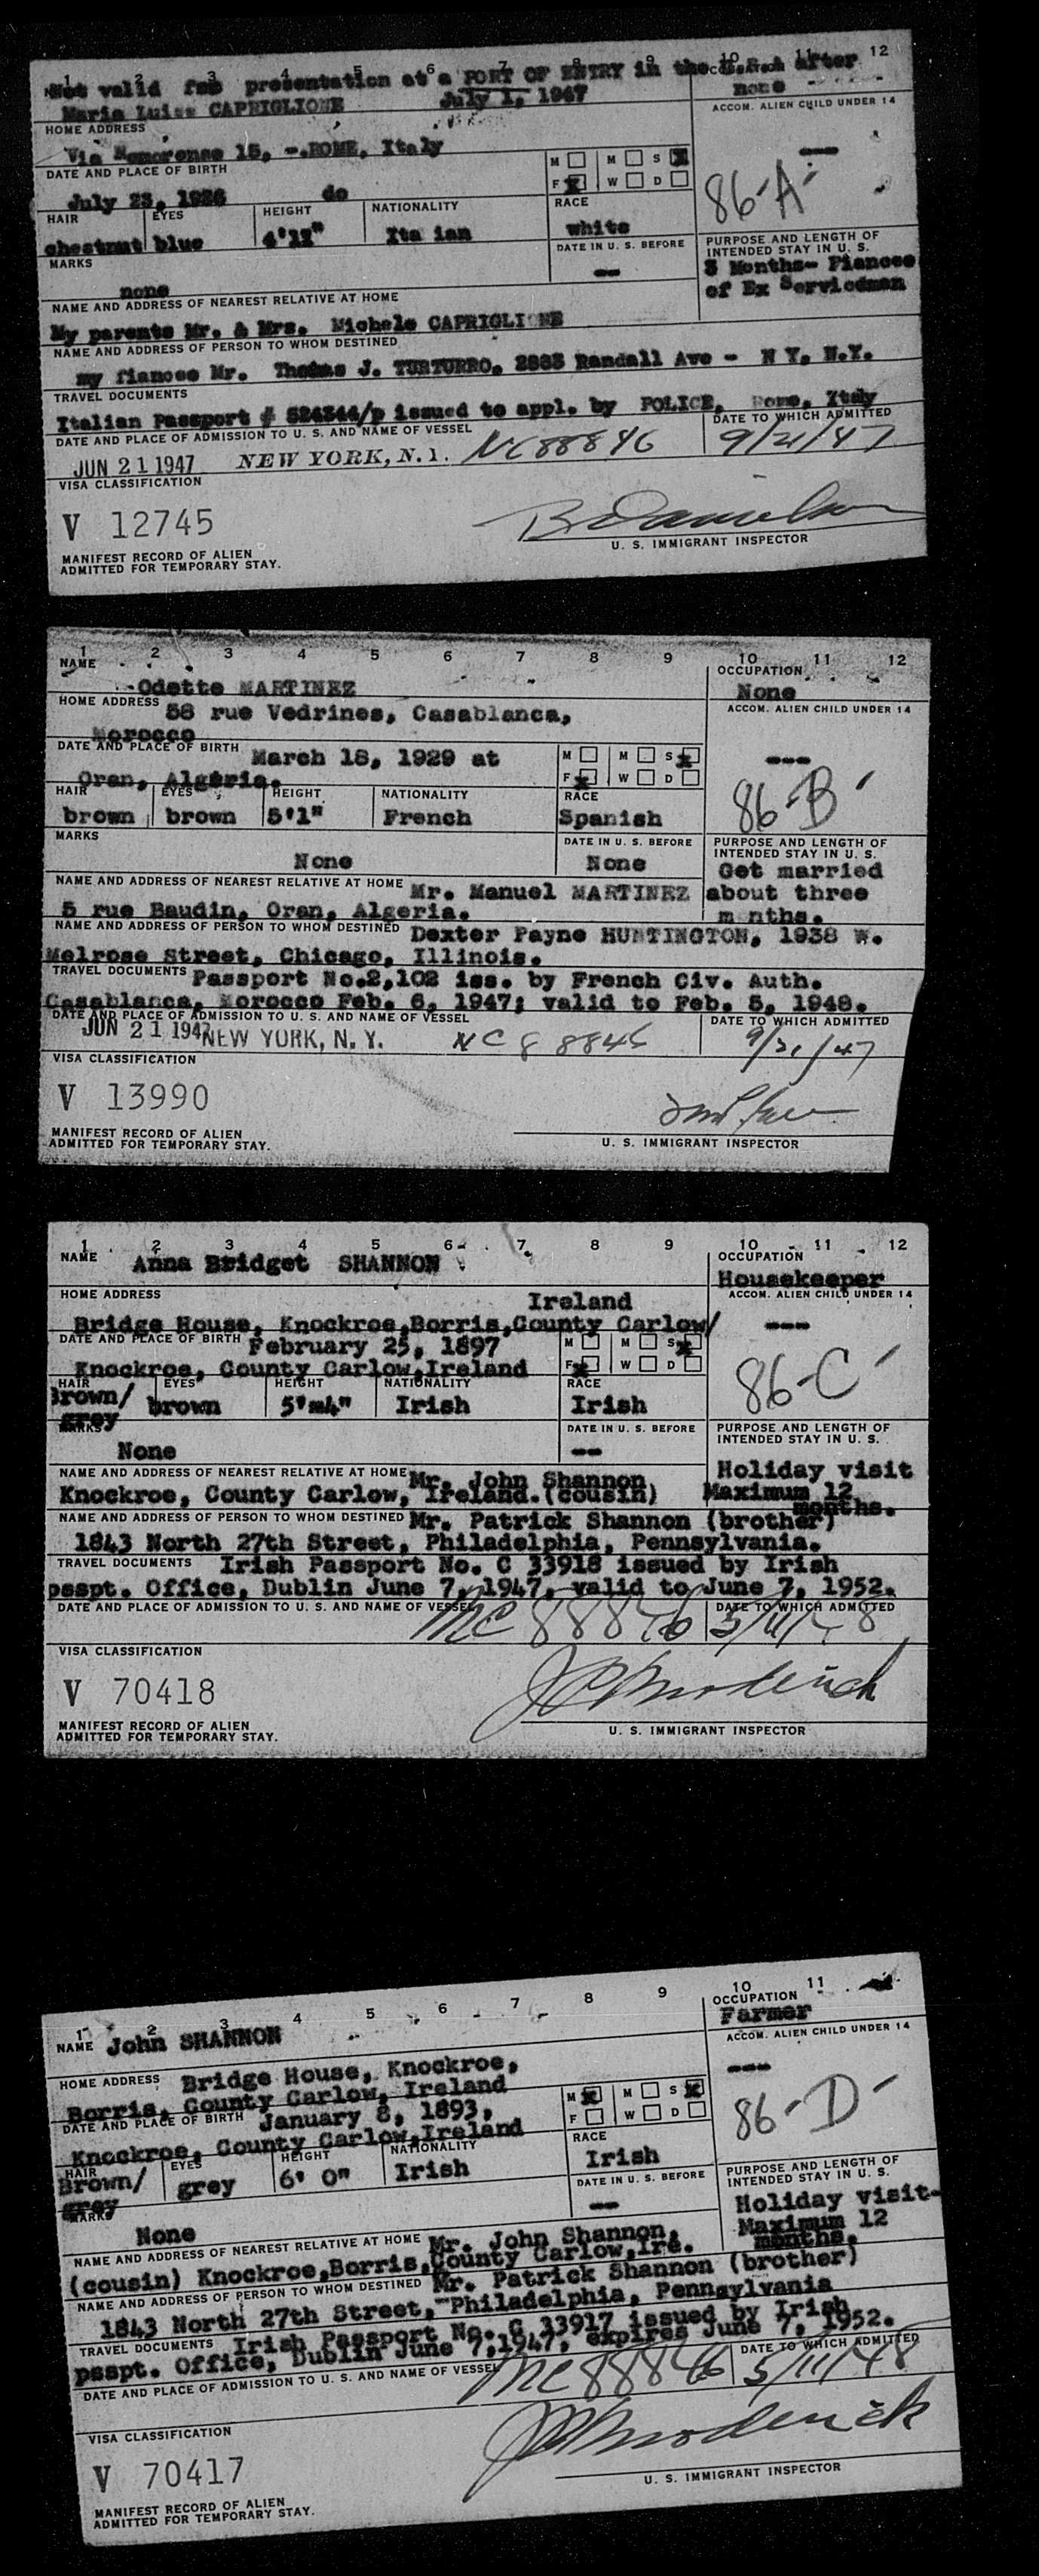 1 2 3 4 5 6 7 8 9 10 11 12
Not valid for presentation at a PORT OF ENTRY in the after
Maria Luisa CAPRIGLIONE July 1, 1947 none
HOME ADDRESS ACCOM. ALIEN CHILD UNDER 14
Via 15, -.ROME, Italy --
DATE AND PLACE OF BIRTH M M S X
July 23, 1926 do F X W D 86-A-
HAIR EYES HEIGHT NATIONALITY RACE
chestnut blue Ita ian white
MARKS DATE IN U. S. BEFORE PURPOSE AND LENGTH OF INTENDED STAY IN U. S.
none -- 3 Months- Fiancee
NAME AND ADDRESS OF NEAREST RELATIVE AT HOME of Ex Serviceman
My parents Mr. & Mrs. Michele CAPRIGLIONE
NAME AND ADDRESS OF PERSON TO WHOM DESTINED
my fiancee Mr. Thomas J. TURTURRO, Randall Ave - N Y, N.Y.
TRAVEL DOCUMENTS
Italian Passport # issued to appl. by POLICE, Rome, Italy
DATE AND PLACE OF ADMISSION TO U. S. AND NAME OF VESSEL DATE TO WHICH ADMITTED
JUN 21 1947 NEW YORK, N.Y. NC 88846 9/21/47
VISA CLASSIFICATION
V 12745
U. S. IMMIGRANT INSPECTOR
MANIFEST RECORD OF ALIEN
ADMITTED FOR TEMPORARY STAY.
1 2 3 4 5 6 7 8 9 10 11 12
NAME OCCUPATION
Odette MARTINEZ None
HOME ADDRESS 58 rue Vedrines, Casablanca, ACCOM. ALIEN CHILD UNDER 14
Morocco
DATE AND PLACE OF BIRTH March 18, 1929 at M M S X ---
Oran, Algeria. F X W D 86-B-
HAIR EYES HEIGHT NATIONALITY RACE
brown brown 5'1" French Spanish
MARKS DATE IN U. S. BEFORE PURPOSE AND LENGTH OF INTENDED STAY IN U. S.
None None Get married
NAME AND ADDRESS OF NEAREST RELATIVE AT HOME Mr. Manuel MARTINEZ about three
5 rue Baudin, Oran, Algeria. m nths.
NAME AND ADDRESS OF PERSON TO WHOM DESTINED Dexter Payne HUNTINGTON, 1938 W.
Melrose Street, Chicago, Illinois.
TRAVEL DOCUMENTS Passport No.2,102 iss. by French Civ. Auth.
Casablanca, Morocco Feb. 6, 1947; valid to Feb. 5, 1948.
DATE AND PLACE OF ADMISSION TO U. S. AND NAME OF VESSEL DATE TO WHICH ADMITTED
JUN 21 1947 NEW YORK, N. Y. NC 88846 9/21/47
VISA CLASSIFICATION
V 13990
MANIFEST RECORD OF ALIEN
ADMITTED FOR TEMPORARY STAY. U. S. IMMIGRANT INSPECTOR
1 2 3 4 5 6 7 8 9 10 11 12
NAME Anna Bridget SHANNON OCCUPATION
Housekeeper
HOME ADDRESS Ireland ACCOM. ALIEN CHILD UNDER 14
Bridge House, Knockroe,Borris,County Carlow/ ---
DATE AND PLACE OF BIRTH February 25, 1897 M M S X
Knockroe, County Carlow,Ireland F X W D 86-C-
HAIR EYES HEIGHT NATIONALITY RACE
Brown/ brown Irish Irish
grey
MARKS DATE IN U. S. BEFORE PURPOSE AND LENGTH OF INTENDED STAY IN U. S.
None --
NAME AND ADDRESS OF NEAREST RELATIVE AT HOME Mr. John Shannon Holiday visit
Knockroe, County Carlow, Ireland.(cousin) Maximum 12 months.
NAME AND ADDRESS OF PERSON TO WHOM DESTINED Mr. Patrick Shannon (brother)
1843 North 27th Street, Philadelphia, Pennsylvania.
TRAVEL DOCUMENTS Irish Passport No. C 33918 issued by Irish
psspt. Office, Dublin June 7, 1947, valid to June 7, 1952.
DATE AND PLACE OF ADMISSION TO U. S. AND NAME OF VESSEL DATE TO WHICH ADMITTED
NC 88846 5/11/48
VISA CLASSIFICATION
V 70418 J Broderick
MANIFEST RECORD OF ALIEN
ADMITTED FOR TEMPORARY STAY. U. S. IMMIGRANT INSPECTOR
1 2 3 4 5 6 7 8 9 10 11
NAME John SHANNON OCCUPATION
Farmer
HOME ADDRESS Bridge House, Knockroe, ACCOM. ALIEN CHILD UNDER 14
Borris, County Carlow, Ireland ---
DATE AND PLACE OF BIRTH January 8, 1893, M X M S X
Knockroe, County Carlow,Ireland F W D 86-D-
HAIR EYES HEIGHT NATIONALITY RACE
Brown/ grey 6' 0" Irish Irish
grey
MARKS DATE IN U. S. BEFORE PURPOSE AND LENGTH OF INTENDED STAY IN U. S.
None -- Holiday visit-
NAME AND ADDRESS OF NEAREST RELATIVE AT HOME Mr. John Shannon, Maximum 12
(cousin) Knockroe,Borris,County Carlow,Ire. months.
NAME AND ADDRESS OF PERSON TO WHOM DESTINED Mr. Patrick Shannon (brother)
1843 North 27th Street, Philadelphia, Pennsylvania
TRAVEL DOCUMENTS Irish Passport No. C 33917 issued by Irish
psspt. Office, Dublin June 7,1947, expires June 7, 1952.
DATE AND PLACE OF ADMISSION TO U. S. AND NAME OF VESSEL DATE TO WHICH ADMITTED
NC 88846 5/11/48
VISA CLASSIFICATION
V 70417 J Broderick
MANIFEST RECORD OF ALIEN
ADMITTED FOR TEMPORARY STAY. U. S. IMMIGRANT INSPECTOR